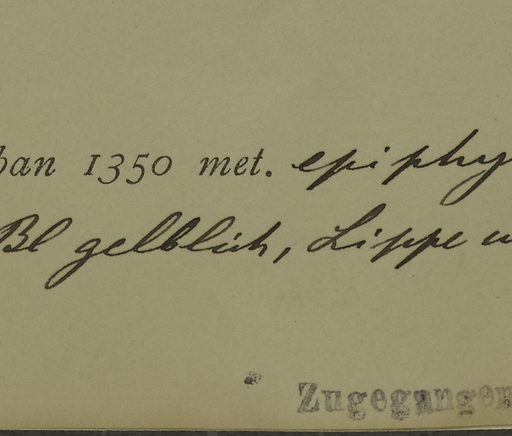 ban 1350 met. epiphy
Bl gelblich, Lippe w
Zugegangen